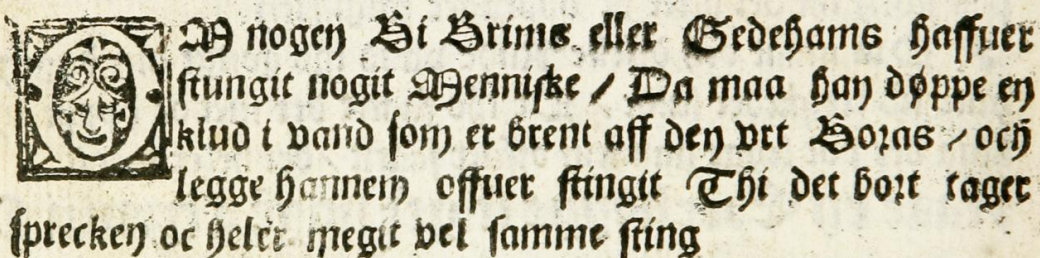 OM nogen Bi Brims eller Gedehams haffuer
stungit nogit Menniske / Da maa han døppe en
klud i vand som er brent aff den vrt Boras / och
legge hannem offuer stingit Thi det bort tager
sprecken oc heler megit vel samme sting